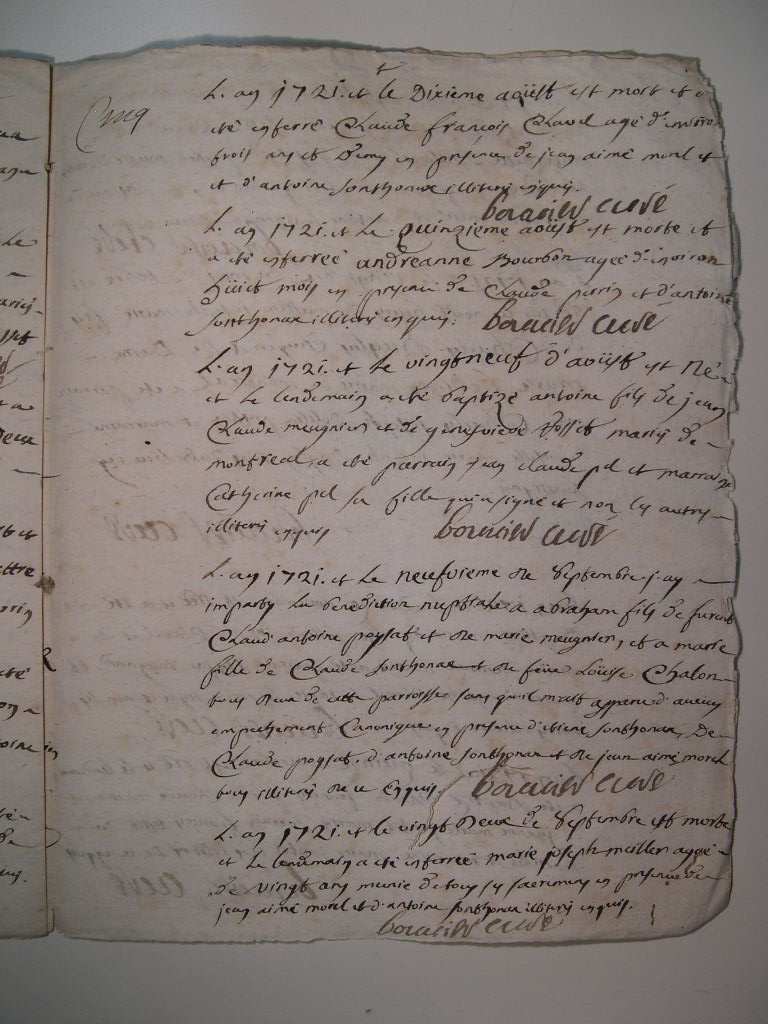 Cinq
L. an 1721. et le Dixieme aoüst est mort et a
eté enterré Claude françois Clavel agé d'environ
trois ans et Demy en presence de jean aimé morel et
et d'antoine sonthonax illiterés enquis.
bouvier curé
L. an 1721. et le quinzieme aoust est morte et
a eté enterreé andreanne Bourbon ageé d'environ
hüict mois en presence de Claude perrin et d'antoine
sonthonax illiterés enquis. bouvier curé
L. an 1721. et le vingtneuf d'aoüst est Né
et le lendemain a eté baptizé antoine fils de jean
Claude meugnier et de genevieve mariés de
montreal, a eté parrain jean claude pel et marraine
Catherine pel sa fille qui a signé et non les autres
illiterés enquis bouvier curé
L. an 1721. et le neufvieme de Septembre j'ay
imparty la benediction nuptiale a abraham fils de furent
Claud' antoine poysat et de marie meugnier, et a marie
fille de Claude sonthonax et de feüe Loüise Chalon
tous Deux de cette parroisse sans qu'il m'ait apparu d'aucun
empechement Canonique en presence d'etiene sonthonax, De
Claude poysat. d'antoine sonthonax et de jean aimé morel
tous illiterés de ce Enquis bouvier curé
L. an 1721. et le vingt Deux de Septembre est morte
et le lendemain a eté enterreé marie joseph meillier ageé
de vingt ans munie de tous ses sacremens en presence de
jean aimé morel et d'antoine sonthonax illiterés enquis.
bouvier curé